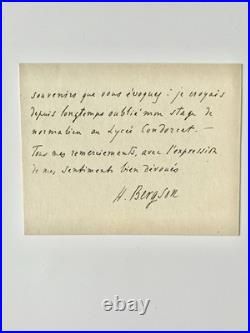 souvenirs que vous évoquez : je croyais
depuis longtemps oublié mon stage de
normalien au Lycée Condorcet. —
Tous mes remerciements, avec l'expression
de mes sentiments bien dévoués
H. Bergson
© through-time.com